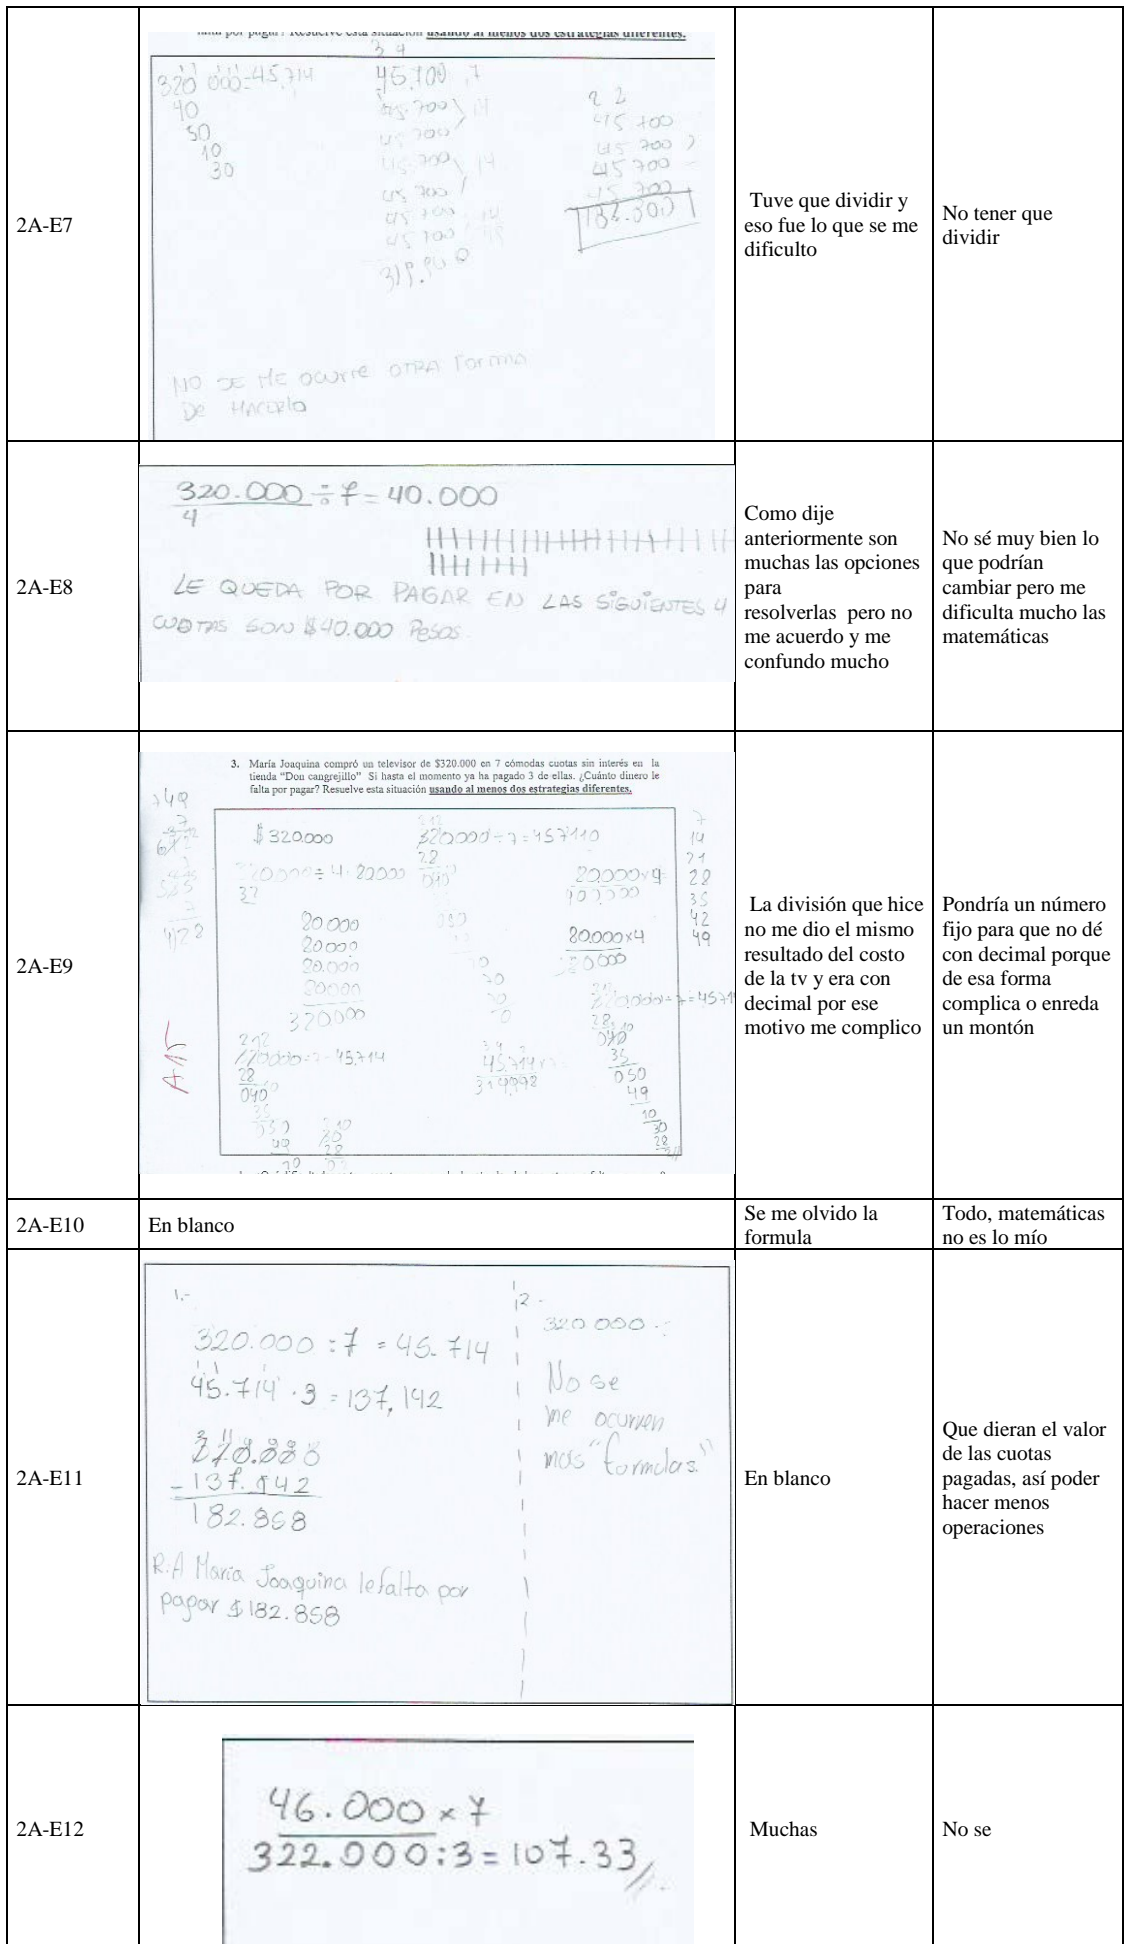 falta por pagar? Resuelve esta situación usando al menos dos estrategias diferentes.
2A-E7
320 000=45.714
40
50
10
30
3 4
45.700 7
45.700 14
45.700
45.700 14
45.700
45.700 14
45.700
319.900
2 2
45 700
45 700
45 700
45 700
182.000
NO SE ME OCURRE OTRA FORMA
DE HACERLO
Tuve que dividir y
eso fue lo que se me
dificulto
No tener que
dividir
2A-E8
320.000 ÷ 7 = 40.000
4
LE QUEDA POR PAGAR EN LAS SIGUIENTES 4
CUOTAS SON $40.000 PESOS.
Como dije
anteriormente son
muchas las opciones
para
resolverlas pero no
me acuerdo y me
confundo mucho
No sé muy bien lo
que podrían
cambiar pero me
dificulta mucho las
matemáticas
2A-E9
3. María Joaquina compró un televisor de $320.000 en 7 cómodas cuotas sin interés en la
tienda “Don cangrejillo” Si hasta el momento ya ha pagado 3 de ellas. ¿Cuánto dinero le
falta por pagar? Resuelve esta situación usando al menos dos estrategias diferentes.
$ 320.000
320000÷4=80000
32
80000
80000
80000
80000
320000
212
320000÷7=457110
28
040
80.000x4
320000
7
14
21
28
35
42
49
212
320000÷7=45714
28
040
35
050
49
10
30
28
212
320000÷7=45714
28
040
35
050
49
10
45.714
314998
A15
La división que hice
no me dio el mismo
resultado del costo
de la tv y era con
decimal por ese
motivo me complico
Pondría un número
fijo para que no dé
con decimal porque
de esa forma
complica o enreda
un montón
2A-E10
En blanco
Se me olvido la
formula
Todo, matemáticas
no es lo mío
2A-E11
1.-
320.000 : 7 = 45.714
45.714 · 3 = 137,142
- 137.142
182.858
R.A María Joaquina le falta por
pagar $182.858
2.-
320 000 :
No se
me ocurren
mas "formulas"
En blanco
Que dieran el valor
de las cuotas
pagadas, así poder
hacer menos
operaciones
2A-E12
46.000 x 7
322.000:3=107.33
Muchas
No se